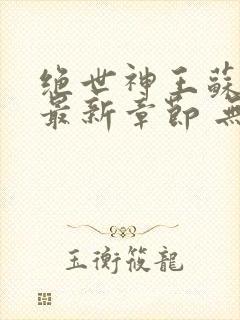 绝世神王蘇
最新章節 無
玉衡筱龍